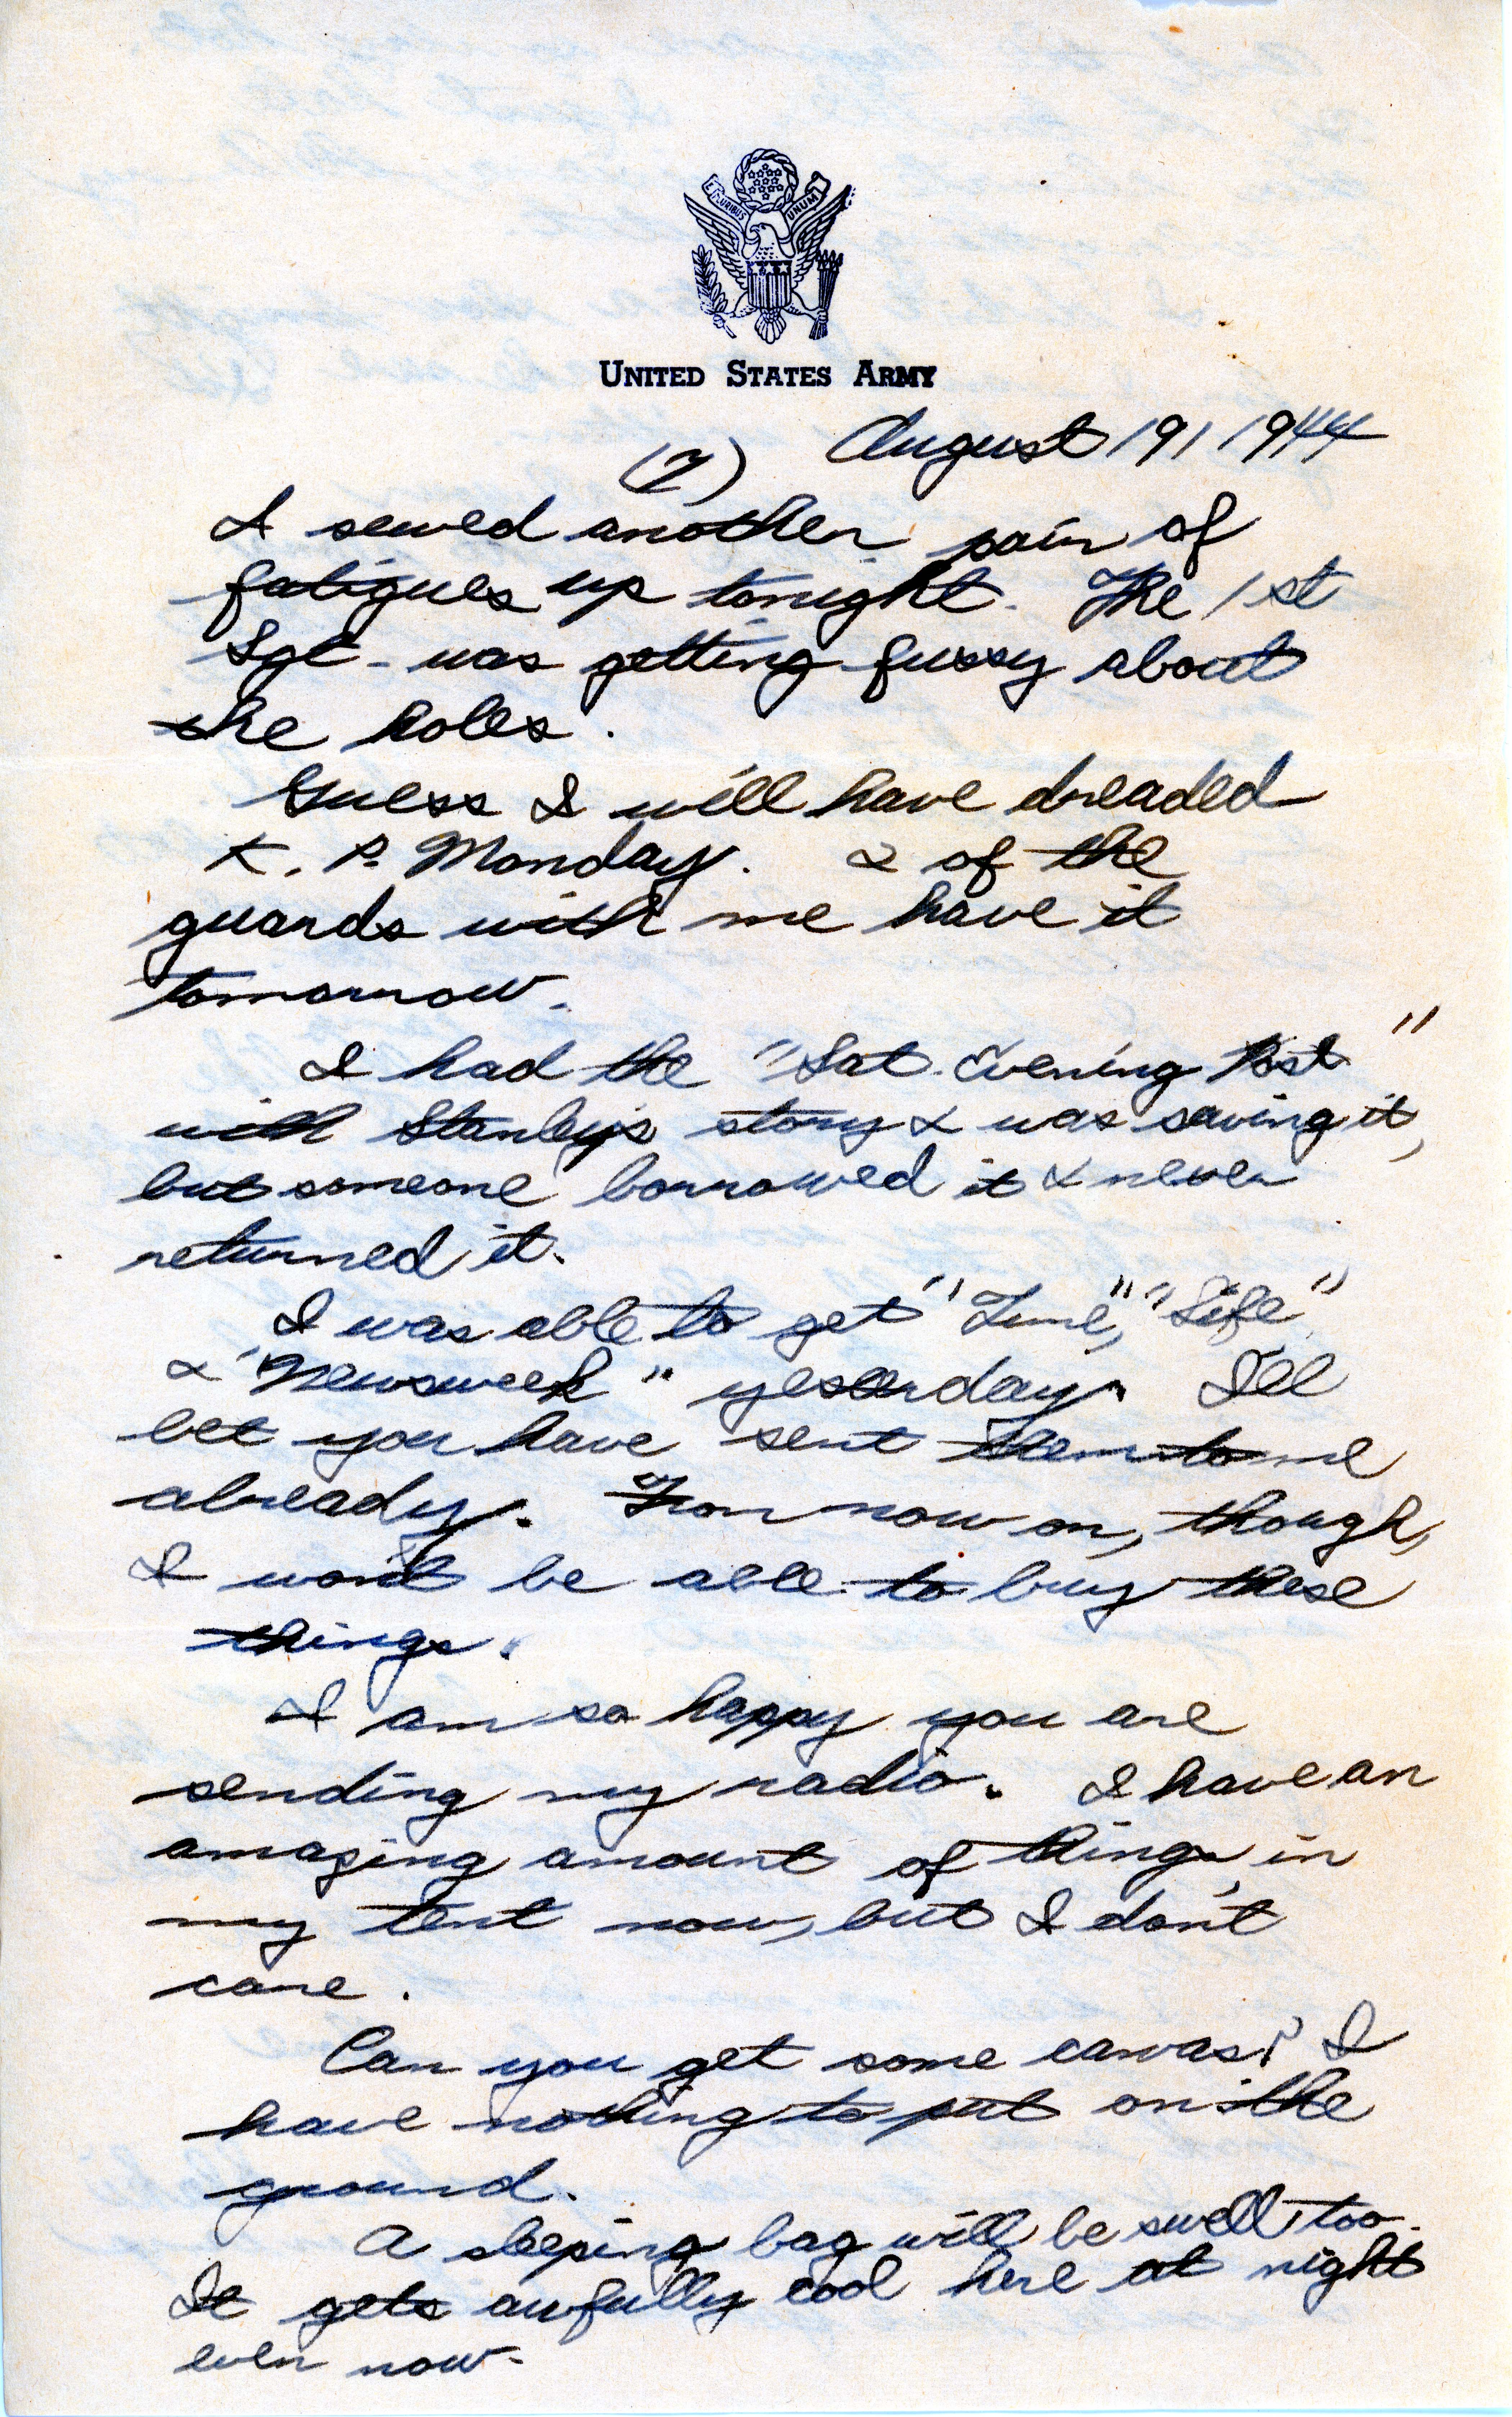 E PLURIBUS UNUM
UNITED STATES ARMY
August 19, 1944
(7)
I sewed another pair of
fatigues up tonight. The 1st
Sgt. was getting fussy about
the holes.
Guess I will have dreaded
K. P. Monday. 2 of the
guards with me have it
tomorrow.
I had the "Sat. Evening Post"
with Stanley's story & was saving it,
but someone borrowed it & never
returned it.
I was able to get "Time," "Life"
& "Newsweek" yesterday. I'll
bet you have sent them to me
already. From now on, though,
I won't be able to buy these
things.
I am so happy you are
sending my radio. I have an
amazing amount of things in
my tent now, but I don't
care.
Can you get some canvas? I
have nothing to put on the
ground.
A sleeping bag will be swell too.
It gets awfully cool here at night
even now.